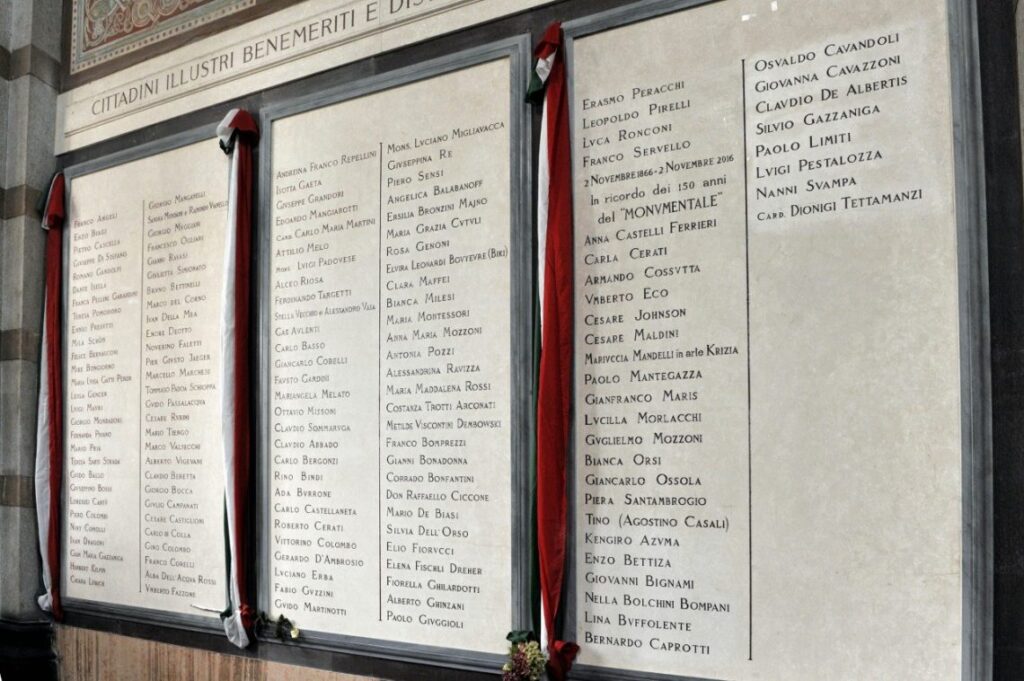 CITTADINI ILLUSTRI BENEMERITI E
FRANCO ANGELI
ENZO BIAGI
PIETRO CASCELLA
GIUSEPPE DI STEFANO
ROMANO GANDOLFI
DANTE ISELLA
FRANCA PELLINI GABARDINI
TERESA POMODORO
ENNIO PRESOTTO
MILA SCHÖN
FELICE BERNASCONI
MIKE BONGIORNO
MARIA LUISA GATTI PERER
LEYLA GENCER
LUIGI MAYRI
GIORGIO MONDADORI
FERNANDA PIVANO
MARIO PRIA
TERESA SARTI STRADA
GUIDO BALLO
GIUSEPPINO BOSSI
LORENZO CAPPI
PIERO COLOMBI
NINY COMOLLI
IVAN DRAGONI
GIAN MARIA GAZZANIGA
HERBERT KILPIN
CHIARA LUBICH
GIORGIO MANGANELLI
GIORGIO MVGLIANI
FRANCESCO OGLIARI
GIANNI RAVASI
GIVLIETTA SIMIONATO
BRVNO BETTINELLI
MARCO DEL CORNO
IVAN DELLA MEA
ENORE DEOTTO
NOVERINO FALETTI
PIER GIVSTO JAEGER
MARCELLO MARCHESI
TOMMASO PADOA SCHIOPPA
GVIDO PASSALACQVA
CESARE RVBINI
MARIO TIENGO
MARCO VALSECCHI
ALBERTO VIGEVANI
CLAVDIO BERETTA
GIORGIO BOCCA
GIVLIO CAMPANATI
CESARE CASTIGLIONI
CARLO DI COLLA
GINO COLOMBO
FRANCO CORELLI
ALBA DELL'ACQVA ROSSI
VMBERTO FAZZONE
ANDREINA FRANCO REPELLINI
ISOTTA GAETA
GIVSEPPE GRANDORI
EDOARDO MANGIAROTTI
CARD. CARLO MARIA MARTINI
ATTILIO MELO
MONS. LVIGI PADOVESE
ALCEO RIOSA
FERDINANDO TARGETTI
STELLA VECCHIO E ALESSANDRO VAIA
GAE AVLENTI
CARLO BASSO
GIANCARLO COBELLI
FAVSTO GARDINI
MARIANGELA MELATO
OTTAVIO MISSONI
CLAVDIO SOMMARVGA
CLAVDIO ABBADO
CARLO BERGONZI
RINO BINDI
ADA BVRRONE
CARLO CASTELLANETA
ROBERTO CERATI
VITTORINO COLOMBO
GERARDO D'AMBROSIO
LVCIANO ERBA
FABIO GVZZINI
GVIDO MARTINOTTI
MONS. LVCIANO MIGLIAVACCA
GIVSEPPINA RE
PIERO SENSI
ANGELICA BALABANOFF
ERSILIA BRONZINI MAJNO
MARIA GRAZIA CVTVLI
ROSA GENONI
ELVIRA LEONARDI BOVYEVRE (BIKI)
CLARA MAFFEI
BIANCA MILESI
MARIA MONTESSORI
ANNA MARIA MOZZONI
ANTONIA POZZI
ALESSANDRINA RAVIZZA
MARIA MADDALENA ROSSI
COSTANZA TROTTI ARCONATI
METILDE VISCONTINI DEMBOWSKI
FRANCO BOMPREZZI
GIANNI BONADONNA
CORRADO BONFANTINI
DON RAFFAELLO CICCONE
MARIO DE BIASI
SILVIA DELL'ORSO
ELIO FIORVCCI
ELENA FISCHLI DREHER
FIORELLA GHILARDOTTI
ALBERTO GHINZANI
PAOLO GIVGGIOLI
ERASMO PERACCHI
LEOPOLDO PIRELLI
LVCA RONCONI
FRANCO SERVELLO
2 NOVEMBRE 1866 - 2 NOVEMBRE 2016
In ricordo dei 150 anni
del "MONVMENTALE"
ANNA CASTELLI FERRIERI
CARLA CERATI
ARMANDO COSSVTTA
VMBERTO ECO
CESARE JOHNSON
CESARE MALDINI
MARIVCCIA MANDELLI in arte KRIZIA
PAOLO MANTEGAZZA
GIANFRANCO MARIS
LVCILLA MORLACCHI
GVGLIELMO MOZZONI
BIANCA ORSI
GIANCARLO OSSOLA
PIERA SANTAMBROGIO
TINO (AGOSTINO CASALI)
KENGIRO AZVMA
ENZO BETTIZA
GIOVANNI BIGNAMI
NELLA BOLCHINI BOMPANI
LINA BVFFOLENTE
BERNARDO CAPROTTI
OSVALDO CAVANDOLI
GIOVANNA CAVAZZONI
CLAVDIO DE ALBERTIS
SILVIO GAZZANIGA
PAOLO LIMITI
LVIGI PESTALOZZA
NANNI SVAMPA
CARD. DIONIGI TETTAMANZI